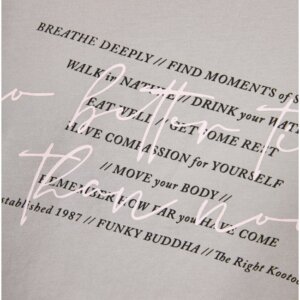 BREATHE DEEPLY // FIND MOMENTS of
WALK in NATURE // DRINK your
EAT WELL // GET SOME REST
HAVE COMPASSION for YOURSELF
// MOVE your BODY //
REMEMBER HOW FAR you HAVE COME
established 1987 // FUNKY BUDDHA // The Right
better
than